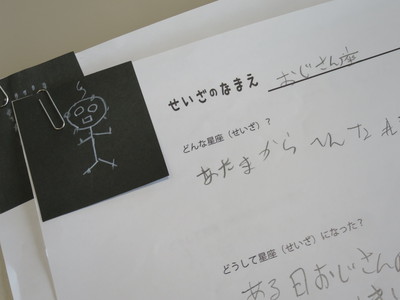 せいざのなまえ おじさん座
どんな星座（せいざ）？
あたまから へんな
どうして星座（せいざ）になった？
ある日おじさんの